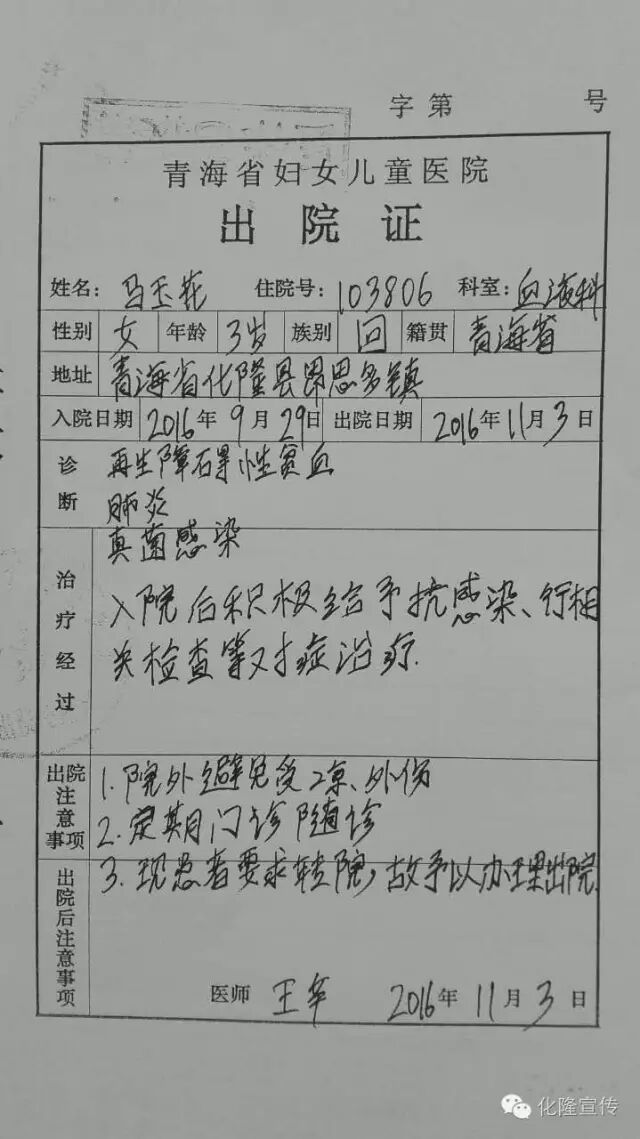 字第 号
青海省妇女儿童医院
出院证
姓名：马玉花 住院号：103806 科室：血液科
性别 女 年龄 3岁 族别 回 籍贯 青海省
地址 青海省化隆县昂思多镇
入院日期 2016年9月29日 出院日期 2016年11月3日
诊断 再生障碍性贫血
肺炎
真菌感染
治疗经过 入院后积极给予抗感染、行相
关检查等对症治疗.
出院注意事项 1.院外避免受凉、外伤
2.定期门诊随诊
出院后注意事项 3.现患者要求转院,故予以办理出院.
医师 王 2016年11月3日
化隆宣传